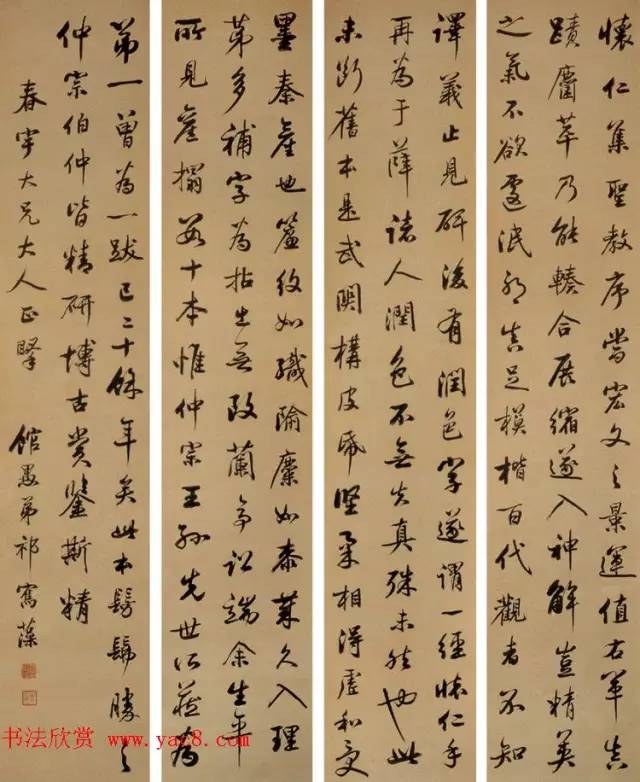 懷仁集聖教序當宏文之景運值右軍真
蹟麕萃乃能輳合展縮遂入神解豈精英
之氣不欲遽泯那真足模楷百代觀者不知
譯義止見研後有潤色字遂謂一經懷仁手
再為于薛諸人潤色不無失真殊未然也此
未斷舊本是武關構皮紙堅柔相得虛和受
墨秦產也簾紋如織隃麋如泰業久入理
第多補字為拈出無改蘭亭訟端余生平
所見舊搨多十本惟仲宗王孫先世所藏為
第一曾為一跋已二十餘年矣此本髣髴勝之
仲宗伯仲皆精研博古賞鑒斯精
春宇大兄大人正 館愚弟祁寯藻
书法欣赏 www.yac8.com